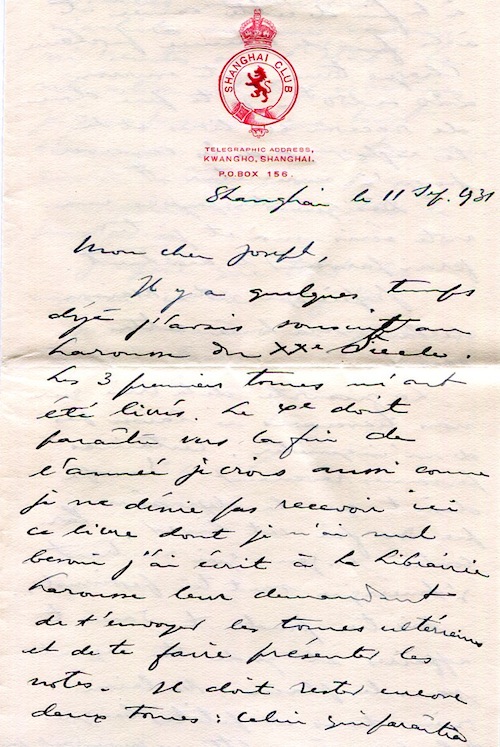 SHANGHAI CLUB
TELEGRAPHIC ADDRESS,
KWANGHO, SHANGHAI.
P.O.BOX 156.
Shanghai le 11 Sep. 1931
Mon cher Joseph,
Il y a quelques temps
déjà j'avais souscrit au
Larousse du XXe Siècle.
Les 3 premiers tomes m'ont
été livrés. Le doit
paraître vers la fin de
l'année je crois aussi comme
je ne désire pas recevoir ici
ce livre dont je n'ai nul
besoin j'ai écrit à la Librairie
Larousse leur demandant
de t'envoyer les tomes ultérieurs
et de te faire présenter les
notes. Il doit rester encore
deux tomes : celui qui paraîtra